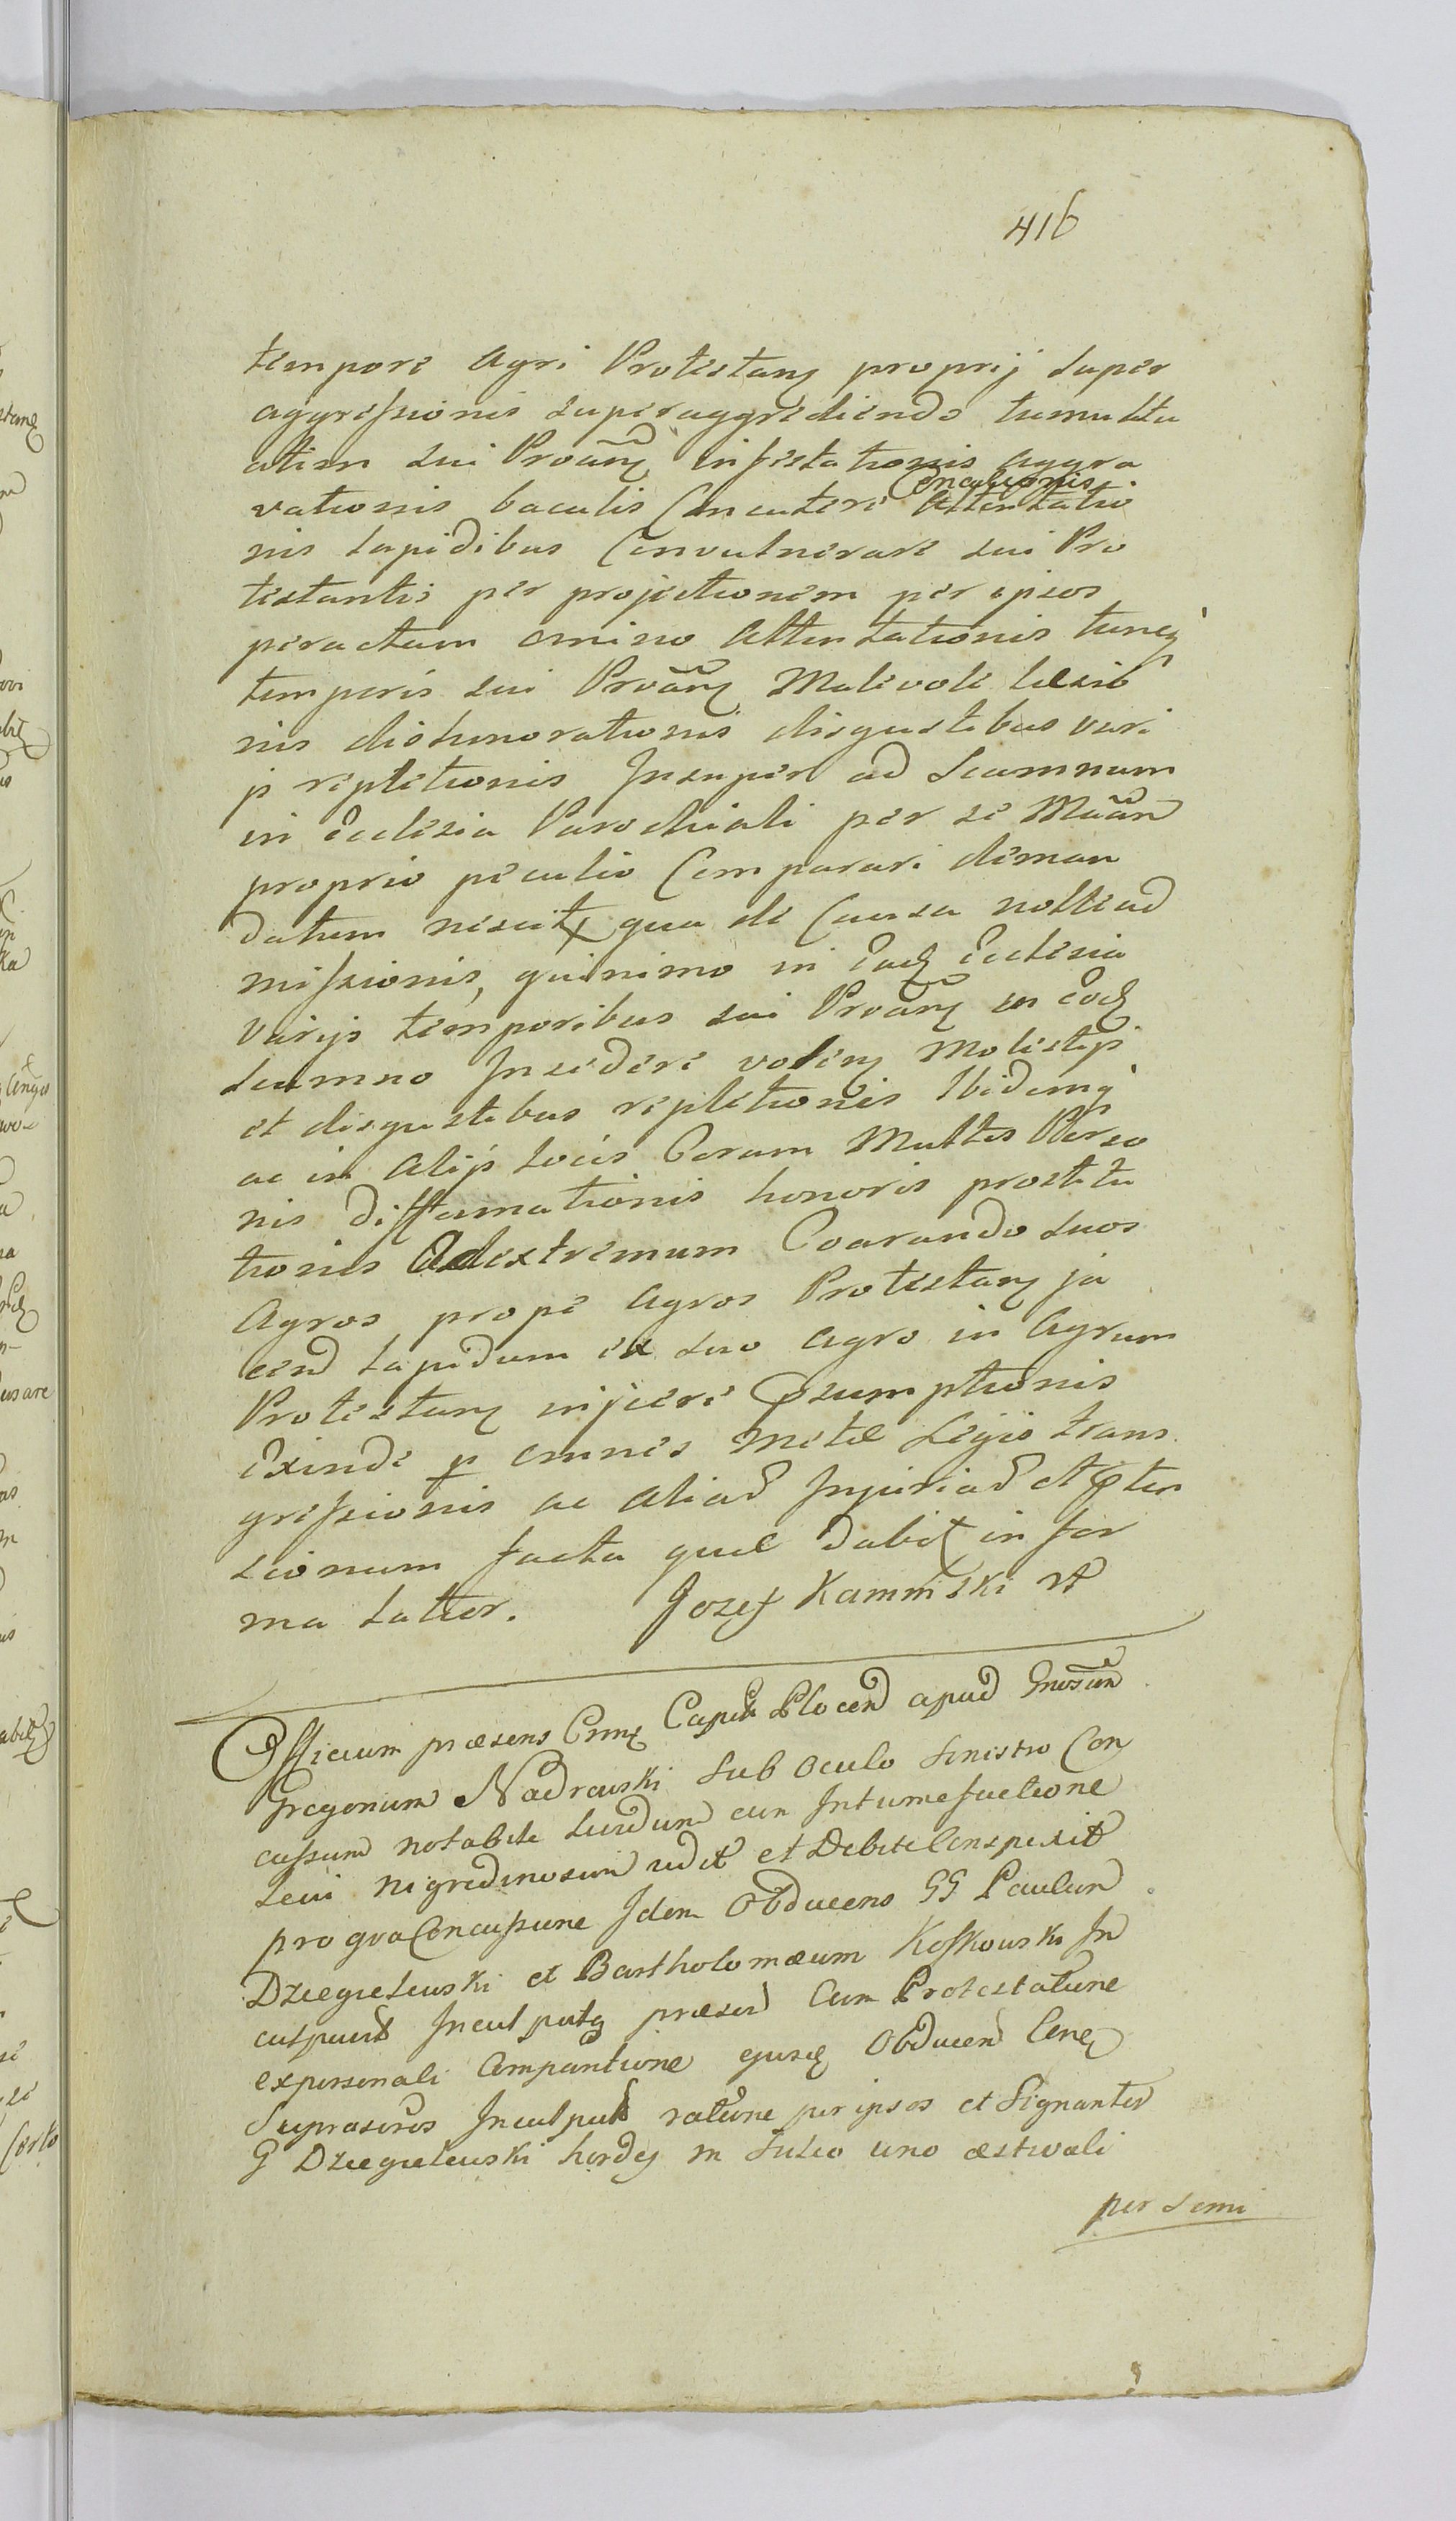 416
tempore agri Protestan proprij super
aggressionis superaggrediendo tumultu
atim sui Proãn infestationis aggra
Concutionis
vationis baculis Concutere Attentatio
nis lapidibus Convulnerare sui Pro
testantis per projectionem per ipsos
peractum omino Attentationis tuncq
temporis sui Proãn Malevole læsio
nis dishonorationis disgustibus vari
js repletionis Insuper ad Scamnum
in Ecclesia Parochiali per se Maãn
proprio peculio Comparari deman
datum nescit qua de Causa nolle ad
missionis, quinimo in ead Ecclesia
Varijs temporibus sui Proãn in eod
scamno Insedere volen Molestijs
et disgustibus repletionis Ibidemq
ac in Alijs Locis Coram Multis Perso
nis diffamationis honoris prostitu
tionis Ad extremum Coarando suos
Agros prope Agros Protestan ja
cen lapidum ex suo agro in Agrum
Protestan injicere Psumptionis
Exinde p omnes Metæ Legis trans
gressionis ac aliar Injuriar et Pten
sionum facta quæ dabit in for
ma latior. Jozef Kaminski
Officium præsens Cap Plocen apud Gnosum
Gregorium Nadrowski sub oculo sinistro Con
cussum notabile lividum cum Intumefactione
seu nigredinosum vidit et Debite Conspexit
pro qua Concussione Idem Obducens GG Paulum
Dziegielewski et Bartholomæum Koskowski In
culpavit Inculpatq præsen Cum Protestatione
expersonali Comparitione ejusd Obducen
Suprascros Inculpat ratione per ipsos et Signanter
G Dziegielewski hordej in Sulco uno æstivali
per semi